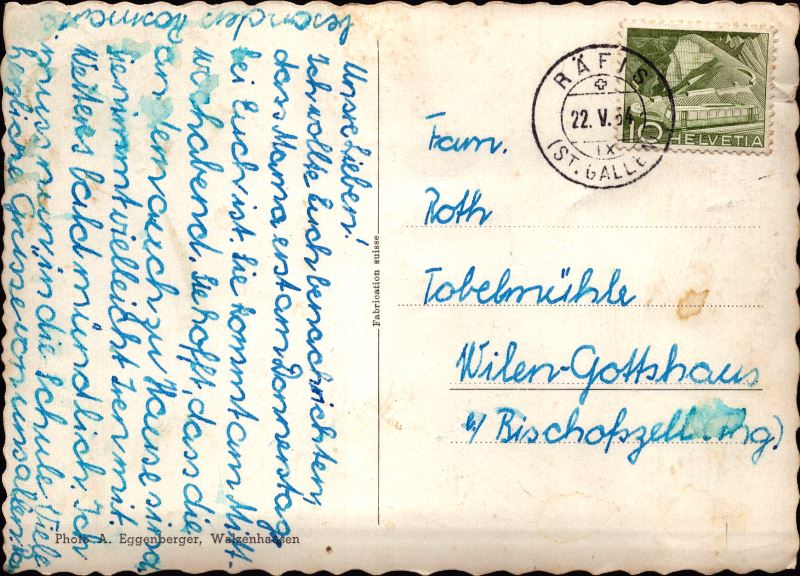 Unsre Lieben!
Ich wollte Euch benachrichten
dass Mama erst am Donnerstag
bei Euch ist. Sie kommt am Mitt-
wochabend. Sie hofft, dass die
an dem auch zu Hause sind
Sie nimmt vielleicht mit
Weiteres bald mündlich. Ich
muss nun in die Schule. Viele
herzliche Grüsse von uns allen
besonders Rosmarie
Photo A. Eggenberger, Walzenhausen
Fabrication suisse
RÄFIS
22. V. 54
IX
(ST. GALLEN)
10 HELVETIA
Fam.
Roth
Tobelmühle
Wilen-Gottshaus
b/ Bischofszell (Thg).